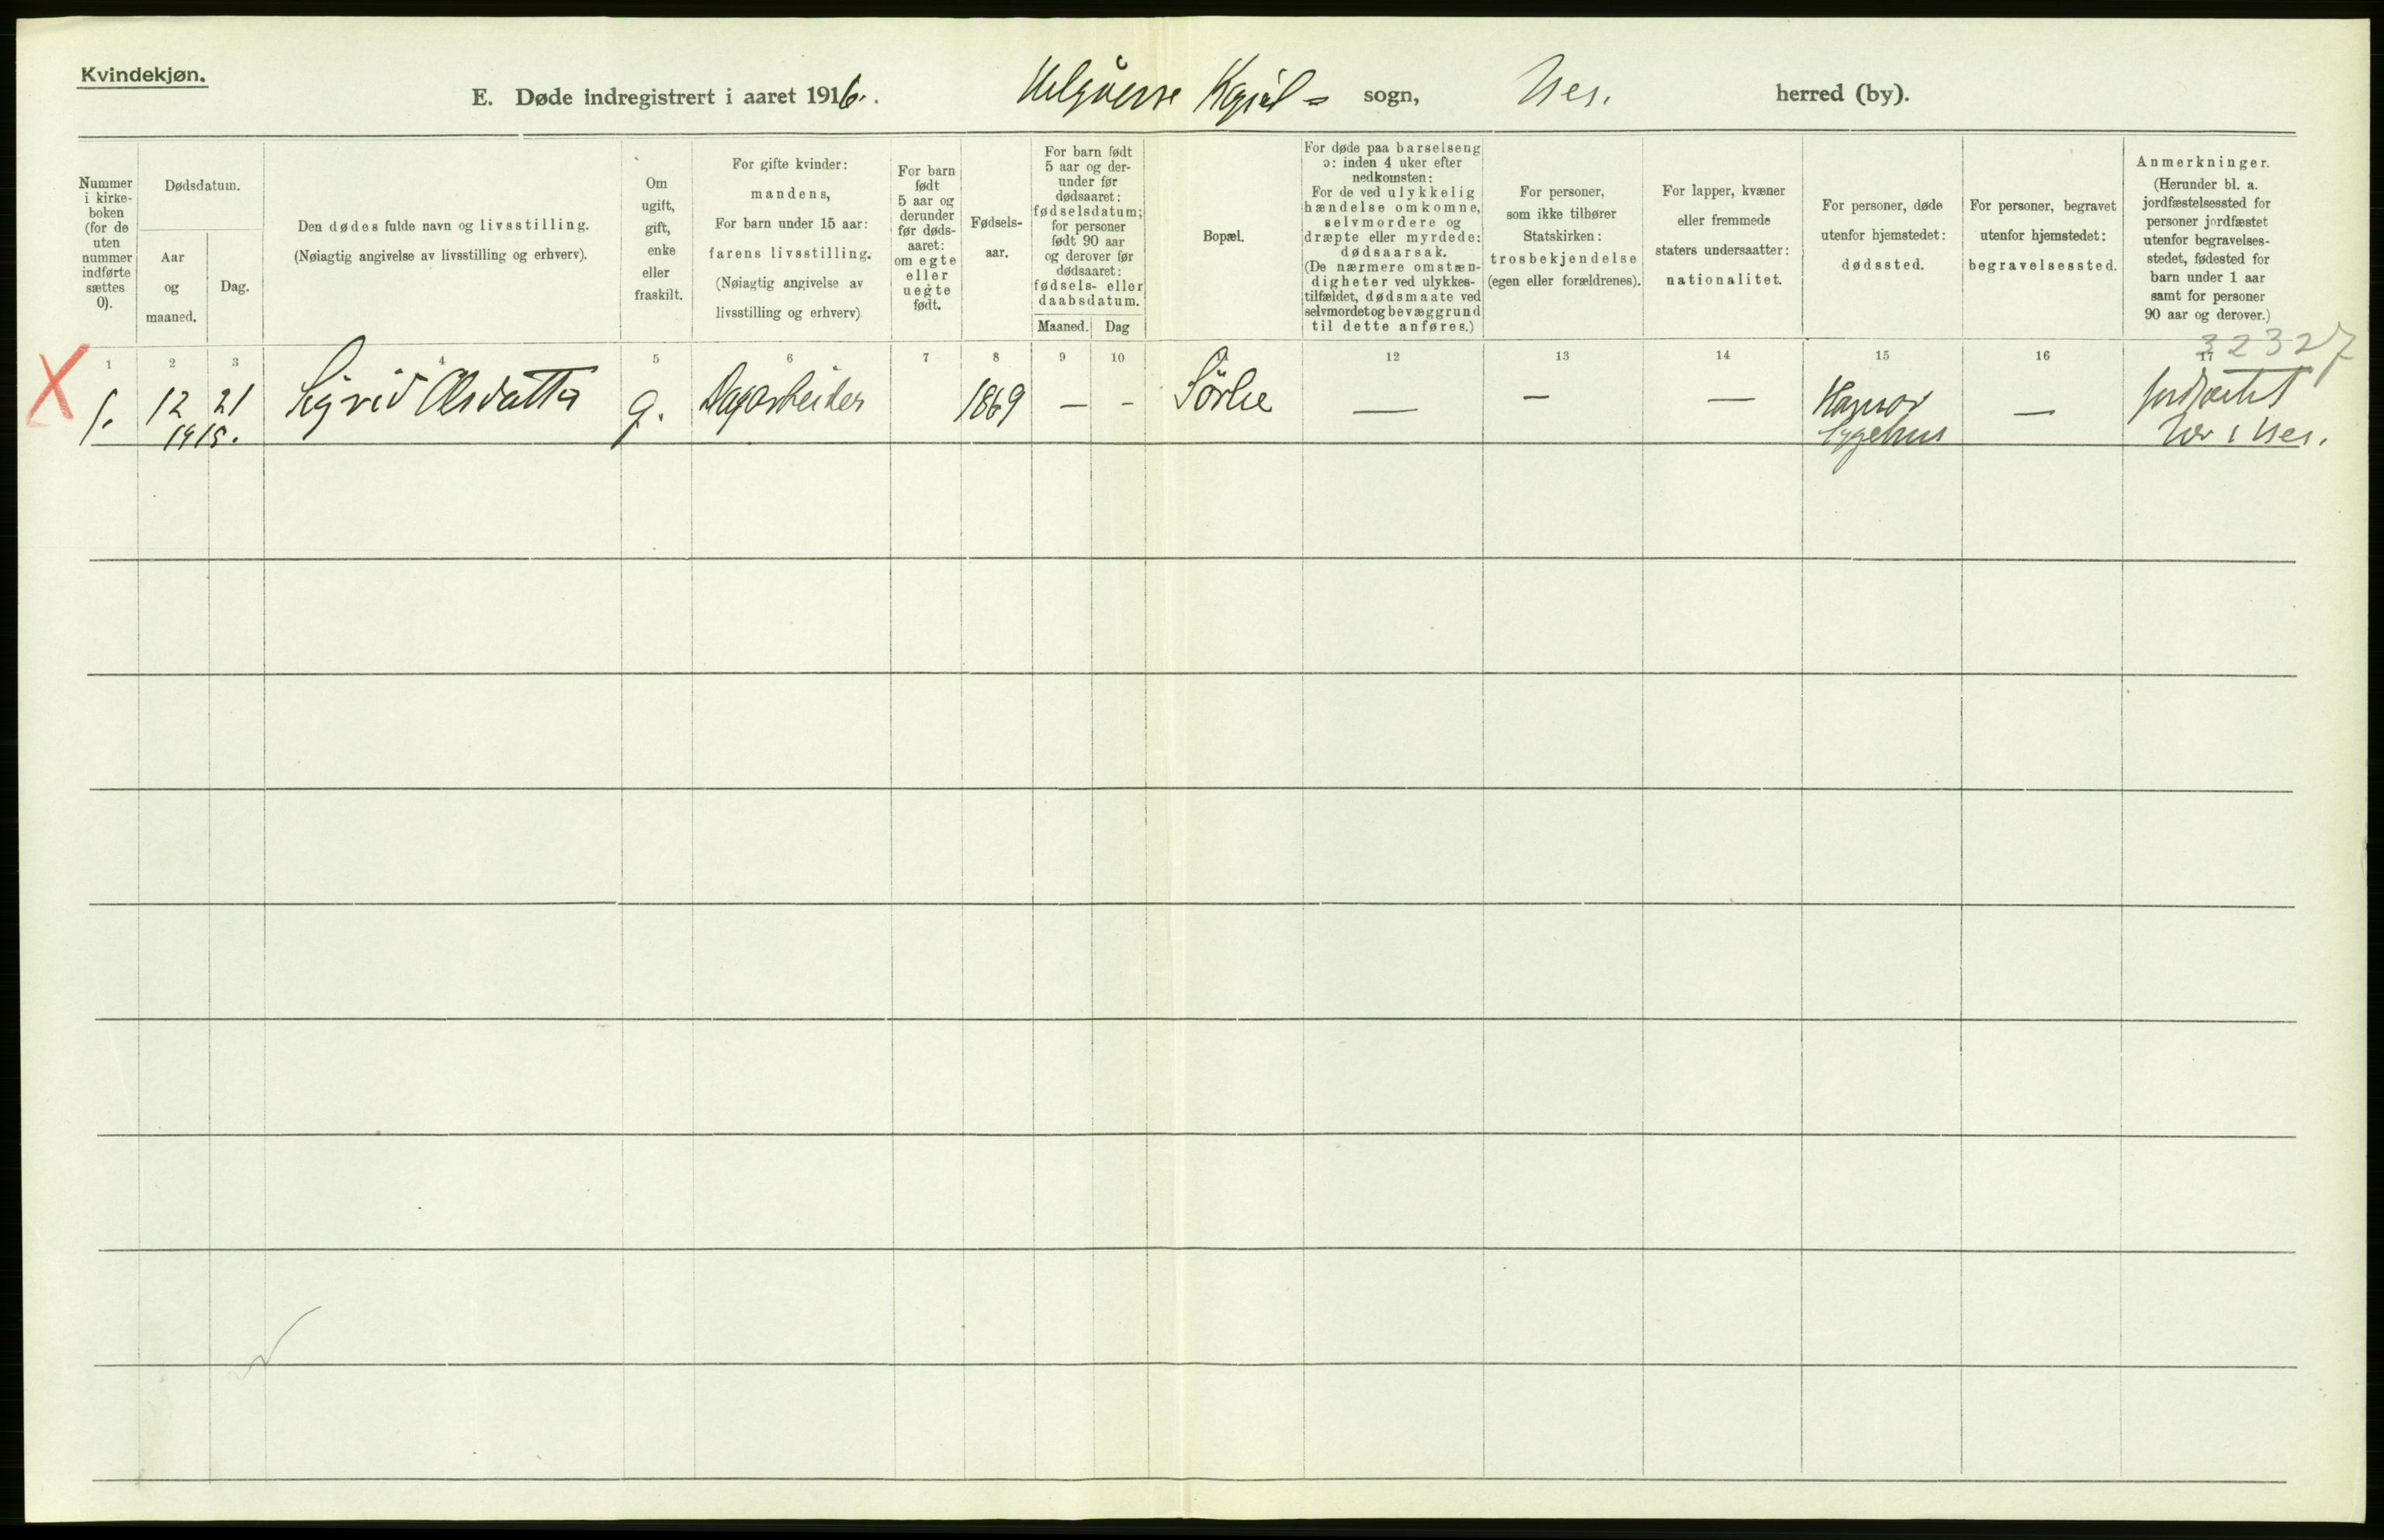 Kvindekjøn.
E. Døde indregistrert i aaret 1916. Helgøens Kapel = sogn, Nes. herred (by).
Nummer
i kirke-
boken
(for de
uten
nummer
indførte
sættes
0).
Dødsdatum.
Aar
og
maaned.
Dag.
Den dødes fulde navn og livsstilling.
(Nøiagtig angivelse av livsstilling og erhverv).
Om
ugift,
gift,
enke
eller
fraskilt.
For gifte kvinder:
mandens,
For barn under 15 aar:
farens livsstilling.
(Nøiagtig angivelse av
livsstilling og erhverv)
For barn
født
5 aar og
derunder
før døds-
aaret:
om egte
eller
uegte
født.
Fødsels-
aar.
For barn født
5 aar og der-
under før
dødsaaret:
fødselsdatum;
for personer
født 90 aar
og derover før
dødsaaret:
fødsels- eller
daabsdatum.
Maaned. Dag
Bopæl.
For døde paa barselseng
ɔ: inden 4 uker efter
nedkomsten:
For de ved ulykkelig
hændelse omkomne,
selvmordere og
dræpte eller myrdede:
dødsaarsak.
(De nærmere omstæn-
digheter ved ulykkes-
tilfældet, dødsmaate ved
selvmordet og bevæggrund
til dette anføres.)
For personer,
som ikke tilhører
Statskirken:
trosbekjendelse
(egen eller forældrenes).
For lapper, kvæner
eller fremmede
staters undersaatter:
nationalitet.
For personer, døde
utenfor hjemstedet:
dødssted.
For personer, begravet
utenfor hjemstedet:
begravelsessted.
Anmerkninger.
(Herunder bl. a.
jordfæstelsessted for
personer jordfæstet
utenfor begravelses-
stedet, fødested for
barn under 1 aar
samt for personer
90 aar og derover.)
32327
1 2 3 4 5 6 7 8 9 10 12 13 14 15 16 17
X 1. 12 21 Sigrid Olsdatter g. Dagarbeider 1869 — - Sørlie — — — Hamar — jordfæstet
1915. Sygehus her i Nes.